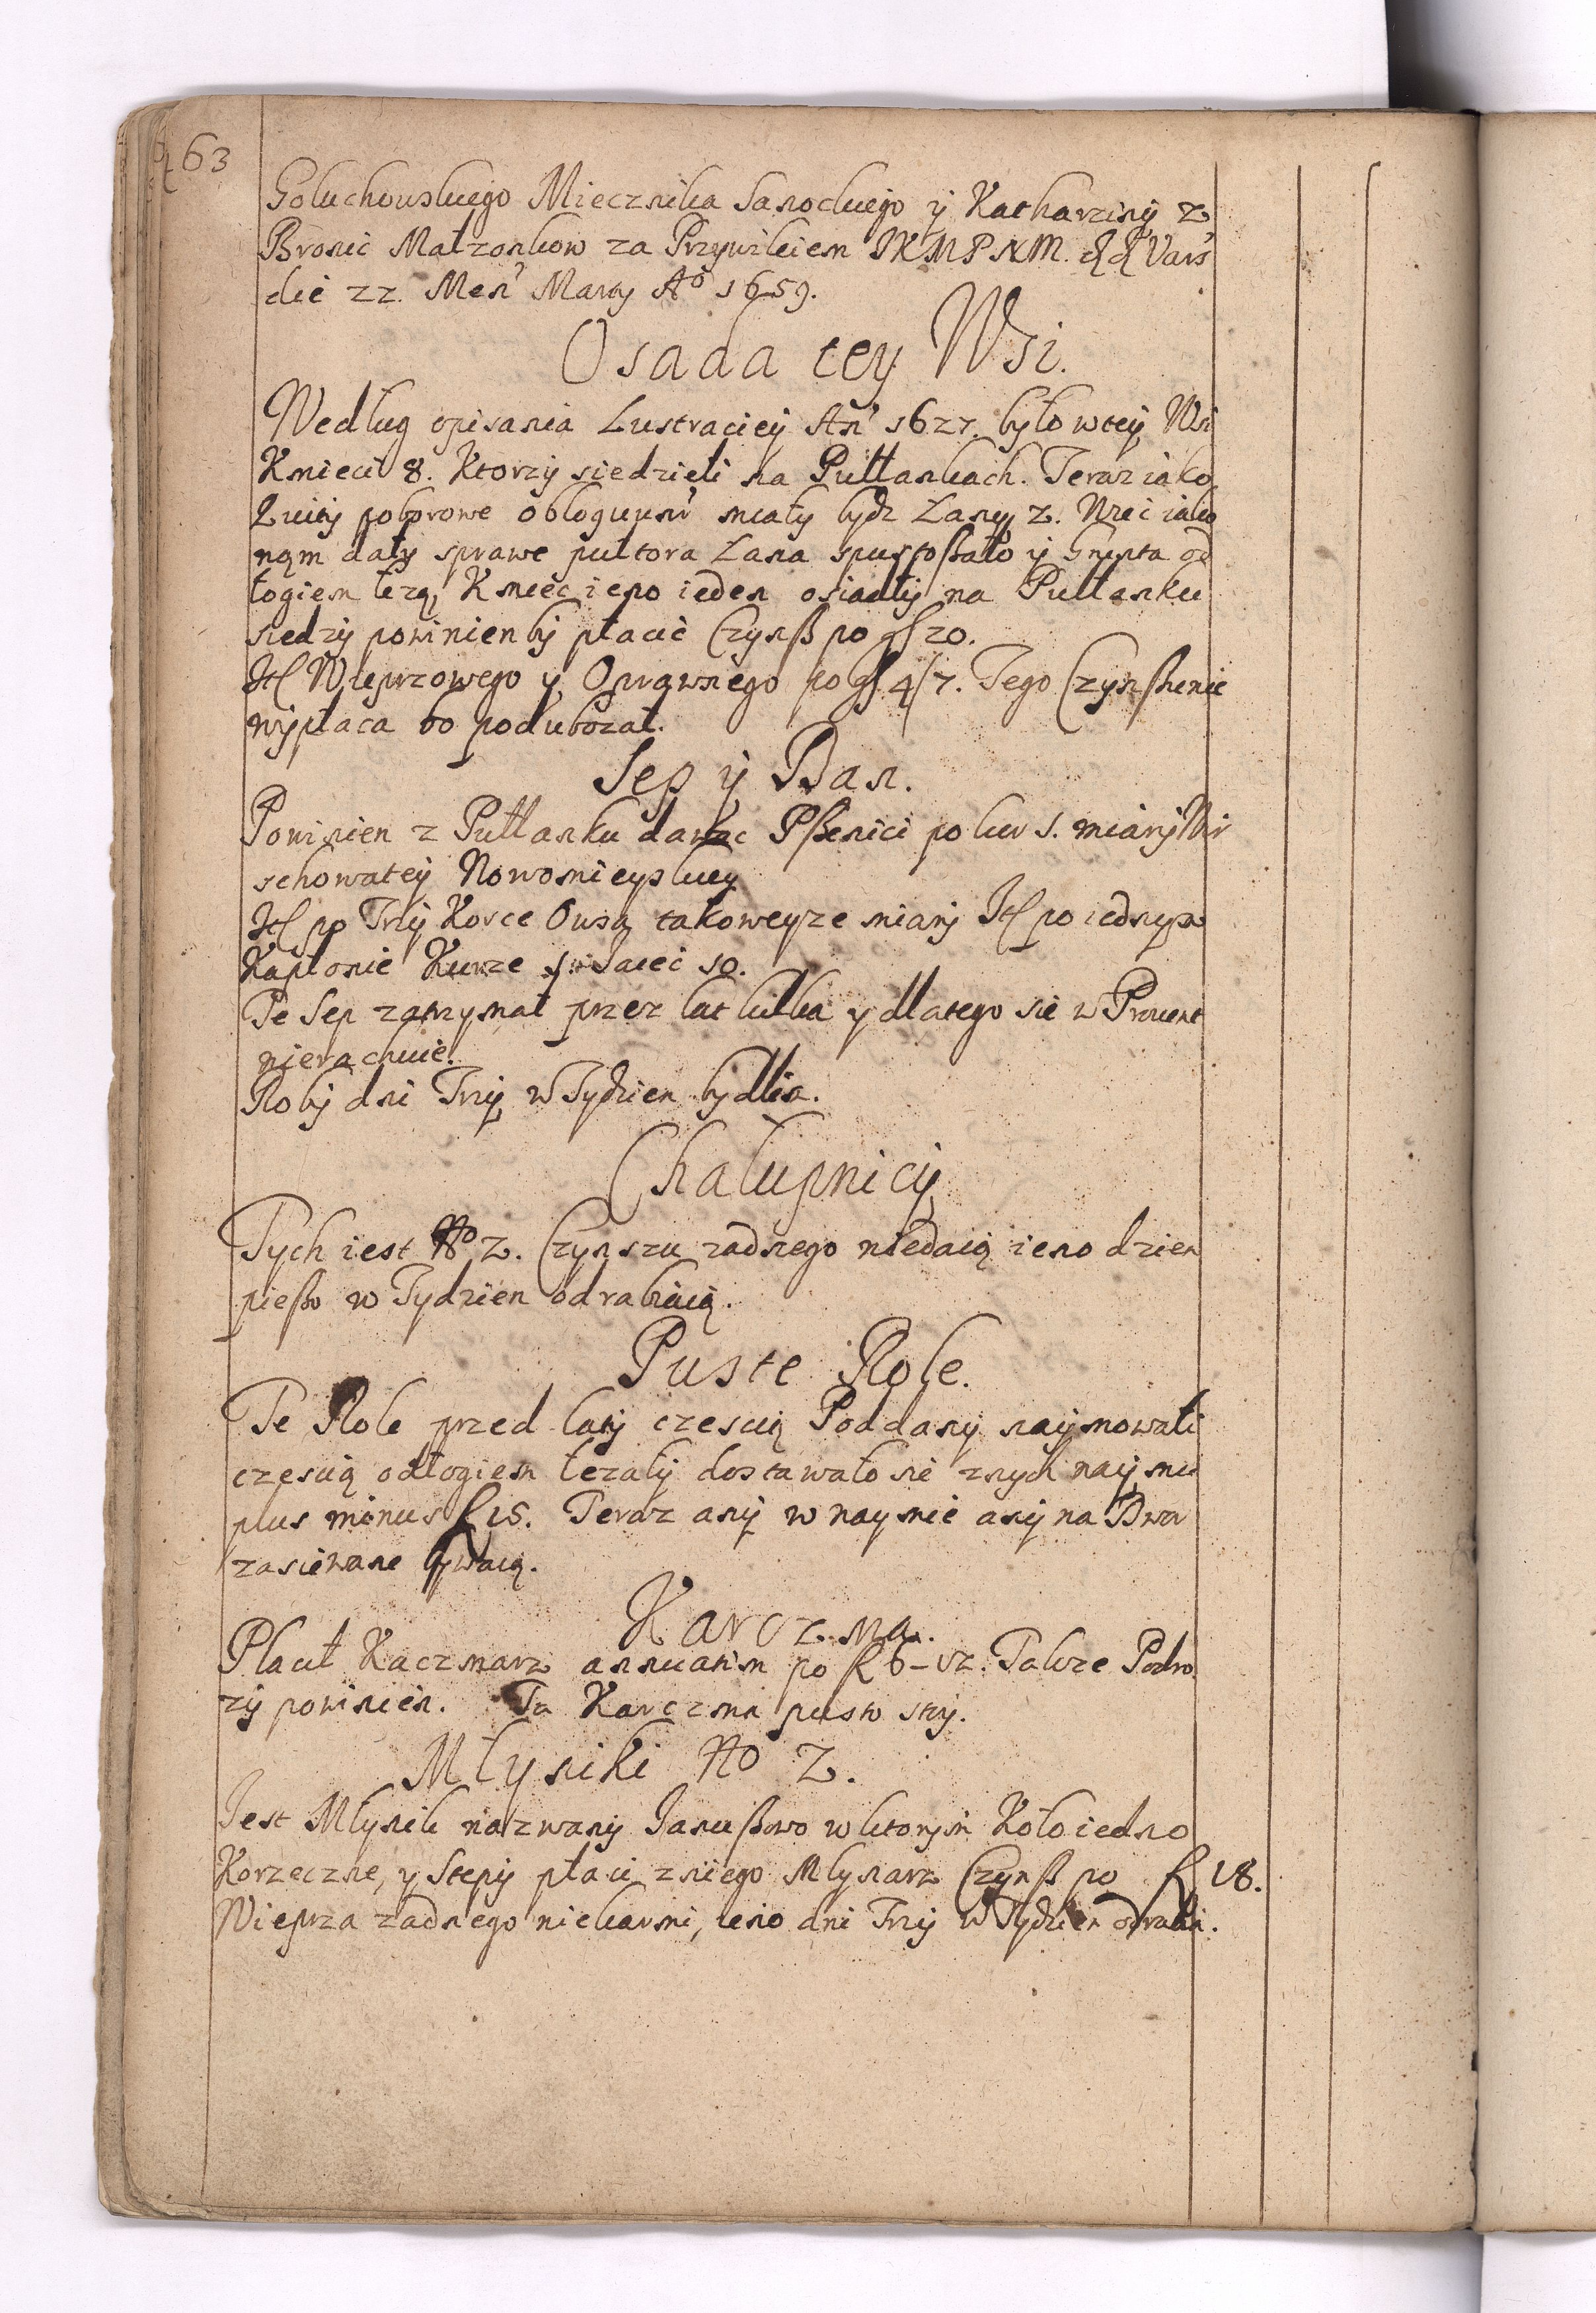 63
Goluchowskiego Miecznika Sanockiego y Katharziny z
Bronic Małzonkow za Przywileiem JKMPNM. dd Vars
die 22. Mens Marty Aº 1659.
Osada tey Wsi.
Według opisania Lustraciey An 1627. było wtey Wsi
Kmieci 8. Ktorzy siedzieli na Pułłankach. Teraz iako
Kwity poborowe obloquunr miały bydz Łany 2. Nzec iako
nąm dały sprawe pułtora Łana spustoszało y Grunta od
łogiem lezą, Kmiec ieno ieden osiadły na Pułłanku
siedzy powinien by płacic Czynß po gß 20.
Itl Wieprzowego y Oprawnego po gß 4/7. Tego Czynßu nie
wypłaca bo podubozał.
Sep y Dan.
Powinien z Pułłanku dawac Pßenici po kor 1. miary Wir
schowatey Nowomieyskiey
Itl po Trzy Korce Owsa takoweyze miary Itl po iednym
Kapłonie Kurze 1. Jaiec 10.
Te Sep zatrzymał przez lat kilka y dlatego sie w Prouent
nierachuie.
Roby dni Trzy w Tydzien bydlem.
Chałupnicy
Tych iest Nº 2. Czynszu zadnego niedaią ieno dzien
pießo w Tydzien odrabiaią.
Puste Role.
Te Role przed laty czescią Poddany naymowali
czescią odłogiem lezały dostawało sie znych naymu
plus minus f 15. Teraz any w naymie any na Dwor
zasiewane bywaią.
Karczma.
Płacił Kaczmarz annuatim po f 6-12. Takze Podro
zy powinien. Ta Karczma pusto stoy.
Młyniki Nº 2.
Jest Młynik nazwany Janußowo wktorym Koło iedno
Korzeczne, y Stępy płaci zniego Młynarz Czynß po f 18.
Wieprza zadnego niekarmi, ieno dni Trzy w Tydzien odrabia.